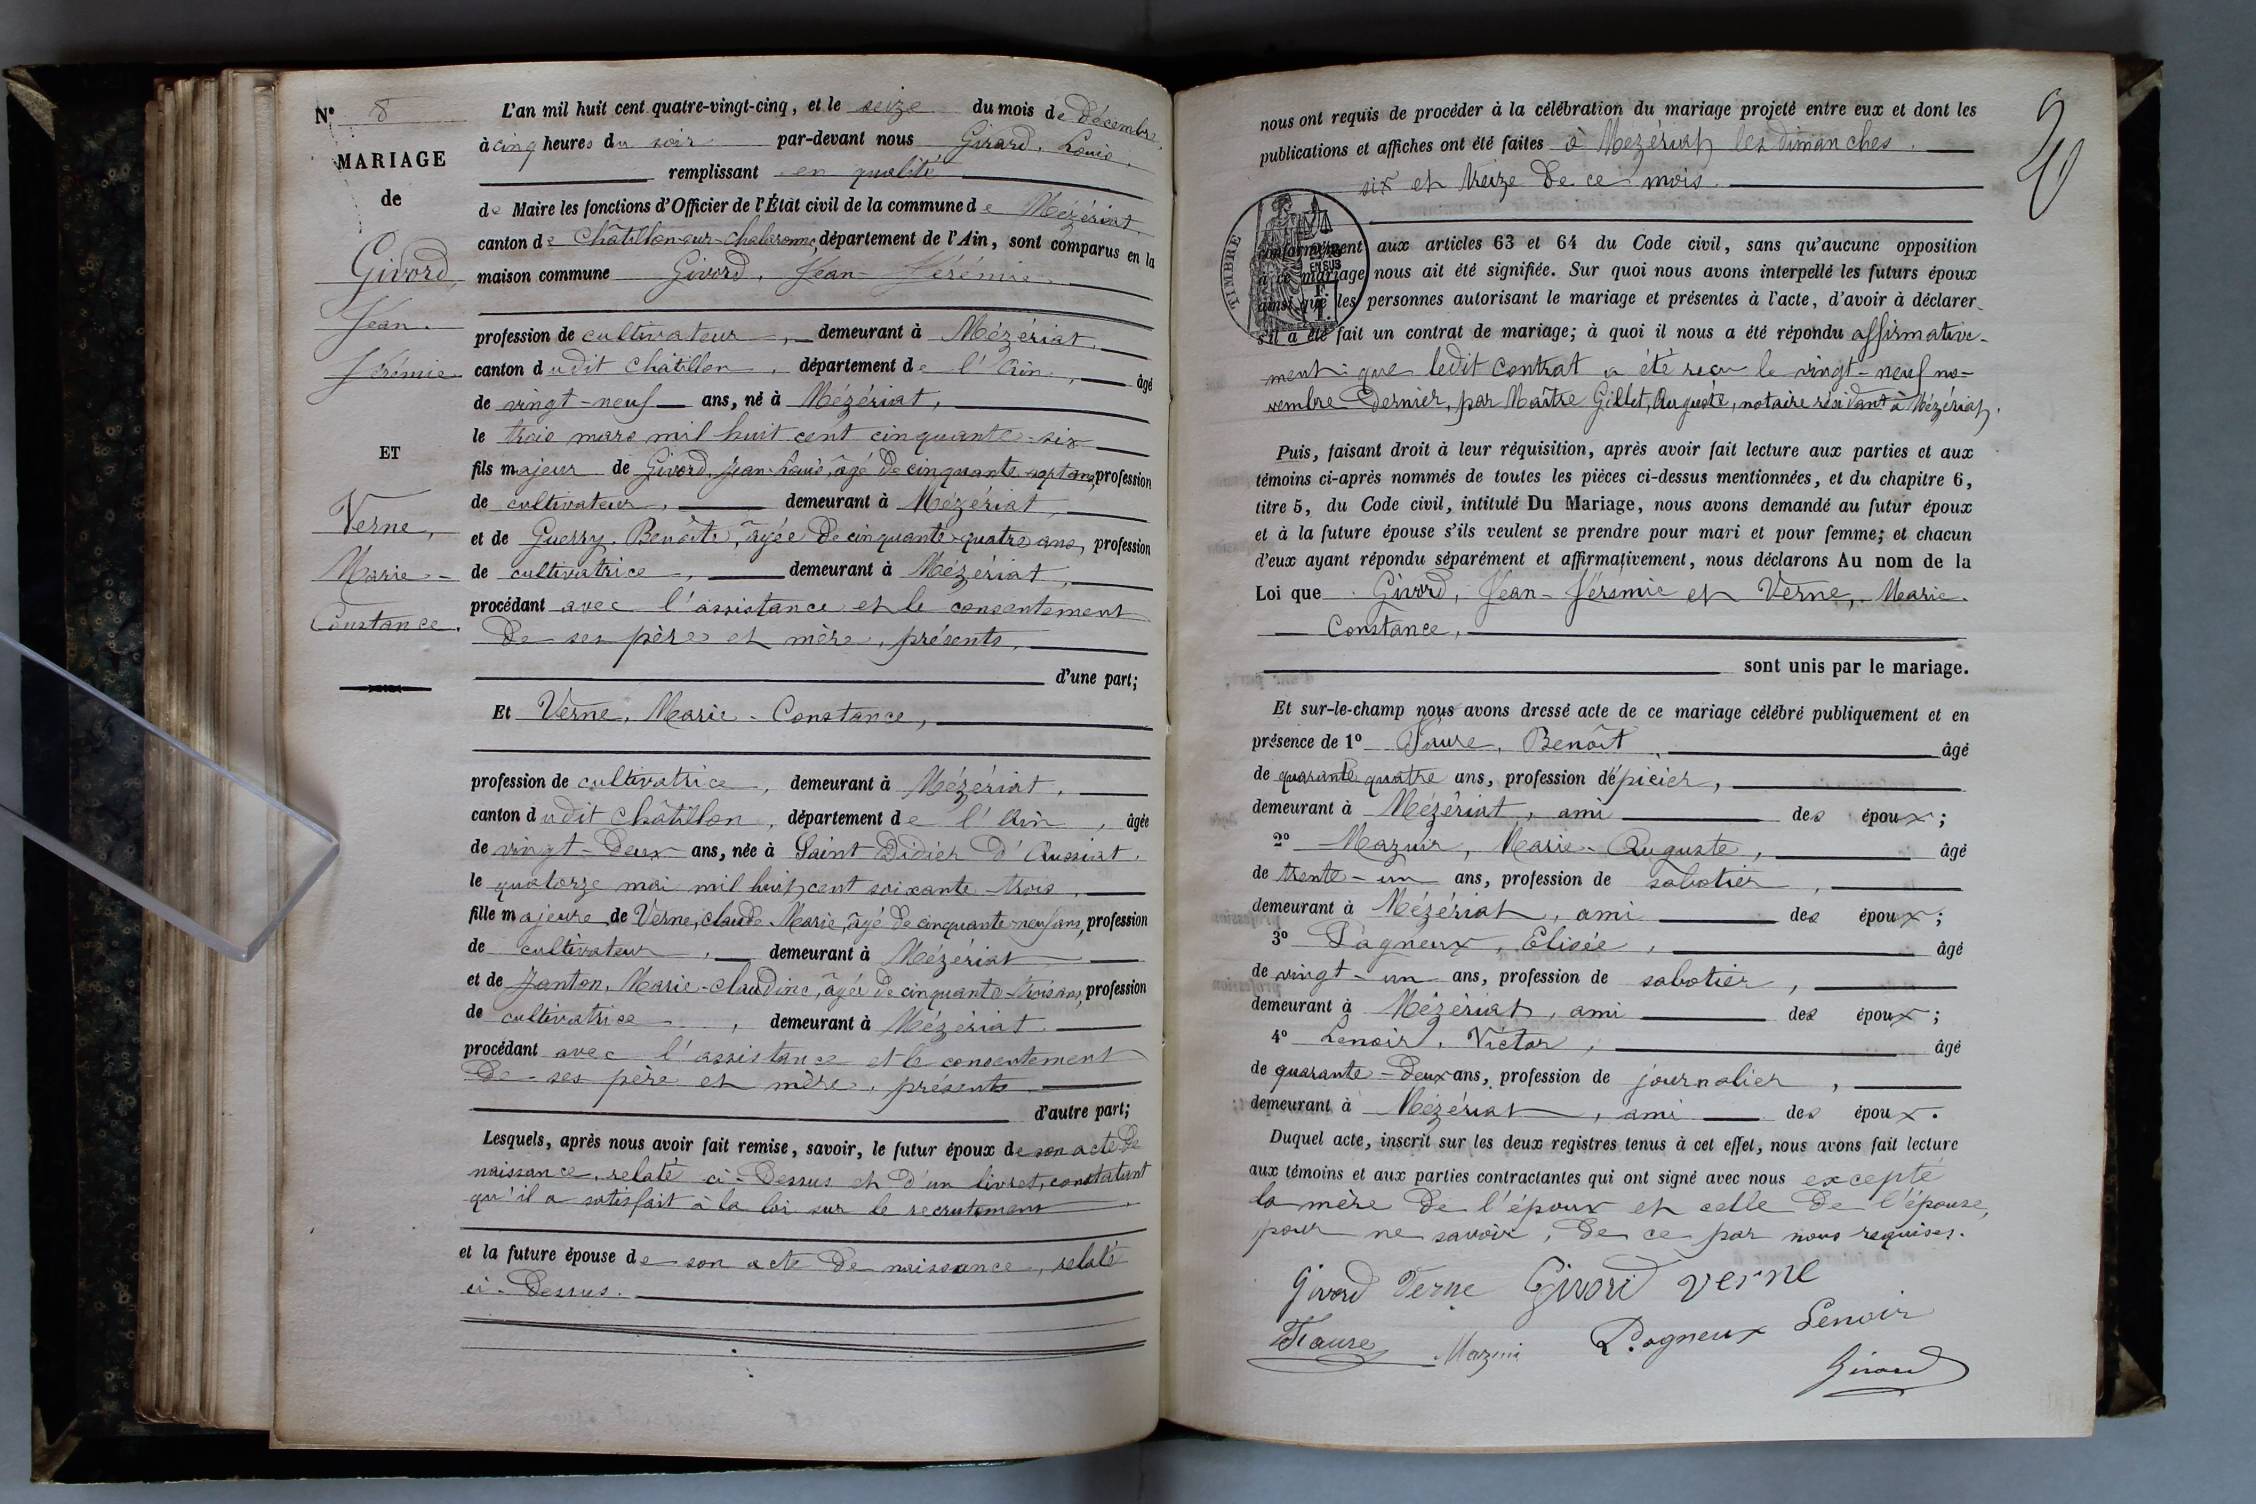 N° 8
MARIAGE
de
Givord,
Jean-
Jérémie
ET
Verne,
Marie-
Constance.
L'an mil huit cent quatre-vingt-cinq, et le seize du mois de Décembre,
à cinq heures du soir par-devant nous Girard, Louis,
remplissant en qualité
de Maire les fonctions d'Officier de l'État civil de la commune de Mézériat,
canton de Châtillon-sur-Chalaronne, département de l'Ain, sont comparus en la
maison commune Givord, Jean-Jérémie,
profession de cultivateur, demeurant à Mézériat,
canton dudit Châtillon, département de l'Ain, âgé
de vingt-neuf ans, né à Mézériat,
le trois mars mil huit cent cinquante-six
fils majeur de Givord, Jean-Louis, âgé de cinquante-sept ans, profession
de cultivateur, demeurant à Mézériat,
et de Guerry, Benoîte, âgée de cinquante-quatre ans, profession
de cultivatrice, demeurant à Mézériat,
procédant avec l'assistance et le consentement
de ses père et mère, présents,
d'une part;
Et Verne, Marie-Constance,
profession de cultivatrice, demeurant à Mézériat,
canton dudit Châtillon, département de l'Ain, âgée
de vingt-deux ans, née à Saint Didier d'Aussiat,
le quatorze mai mil huit cent soixante-trois,
fille majeure de Verne, Claude-Marie, âgé de cinquante-neuf ans, profession
de cultivateur, demeurant à Mézériat
et de Janton, Marie-Claudine, âgée de cinquante-trois ans, profession
de cultivatrice, demeurant à Mézériat
procédant avec l'assistance et le consentement
de ses père et mère, présents
d'autre part;
Lesquels, après nous avoir fait remise, savoir, le futur époux de son acte de
naissance, relaté ci-dessus et d'un livret, constatant
qu'il a satisfait à la loi sur le recrutement
et la future épouse de son acte de naissance, relaté
ci-dessus.
20
nous ont requis de procéder à la célébration du mariage projeté entre eux et dont les
publications et affiches ont été faites à Mézériat, les dimanches
six et treize de ce mois.
TIMBRE
EN SUS
conformément aux articles 63 et 64 du Code civil, sans qu'aucune opposition
à ce mariage nous ait été signifiée. Sur quoi nous avons interpellé les futurs époux
ainsi que les personnes autorisant le mariage et présentes à l'acte, d'avoir à déclarer
s'il a été fait un contrat de mariage; à quoi il nous a été répondu affirmative-
ment: que ledit contrat a été reçu le vingt-neuf no-
vembre dernier, par Maître Gillet, Auguste, notaire résidant à Mézériat.
Puis, faisant droit à leur réquisition, après avoir fait lecture aux parties et aux
témoins ci-après nommés de toutes les pièces ci-dessus mentionnées, et du chapitre 6,
titre 5, du Code civil, intitulé Du Mariage, nous avons demandé au futur époux
et à la future épouse s'ils veulent se prendre pour mari et pour femme; et chacun
d'eux ayant répondu séparément et affirmativement, nous déclarons Au nom de la
Loi que Givord, Jean-Jérémie et Verne, Marie-
Constance,
sont unis par le mariage.
Et sur-le-champ nous avons dressé acte de ce mariage célébré publiquement et en
présence de 1° Faure, Benoît, âgé
de quarante quatre ans, profession d'épicier,
demeurant à Mézériat, ami des époux;
2° Mazuir, Marie-Auguste, âgé
de trente-un ans, profession de sabotier,
demeurant à Mézériat, ami des époux;
3° Pagneux, Elisée, âgé
de vingt-un ans, profession de sabotier,
demeurant à Mézériat, ami des époux;
4° Lenoir, Victor, âgé
de quarante-deux ans, profession de journalier,
demeurant à Mézériat, ami des époux.
Duquel acte, inscrit sur les deux registres tenus à cet effet, nous avons fait lecture
aux témoins et aux parties contractantes qui ont signé avec nous excepté
la mère de l'époux et celle de l'épouse,
pour ne savoir, de ce par nous requises.
Givord Verne Givord verne
Faure Mazuir Pagneux Lenoir
Girard